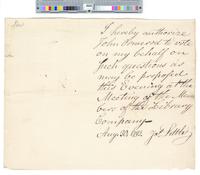 I hereby authorize
John Ormerod to vote
on my behalf on
such questions as
may be proposed
this Evening at the
Meeting of the Mem
bers of the Library
Company
Aug. 30